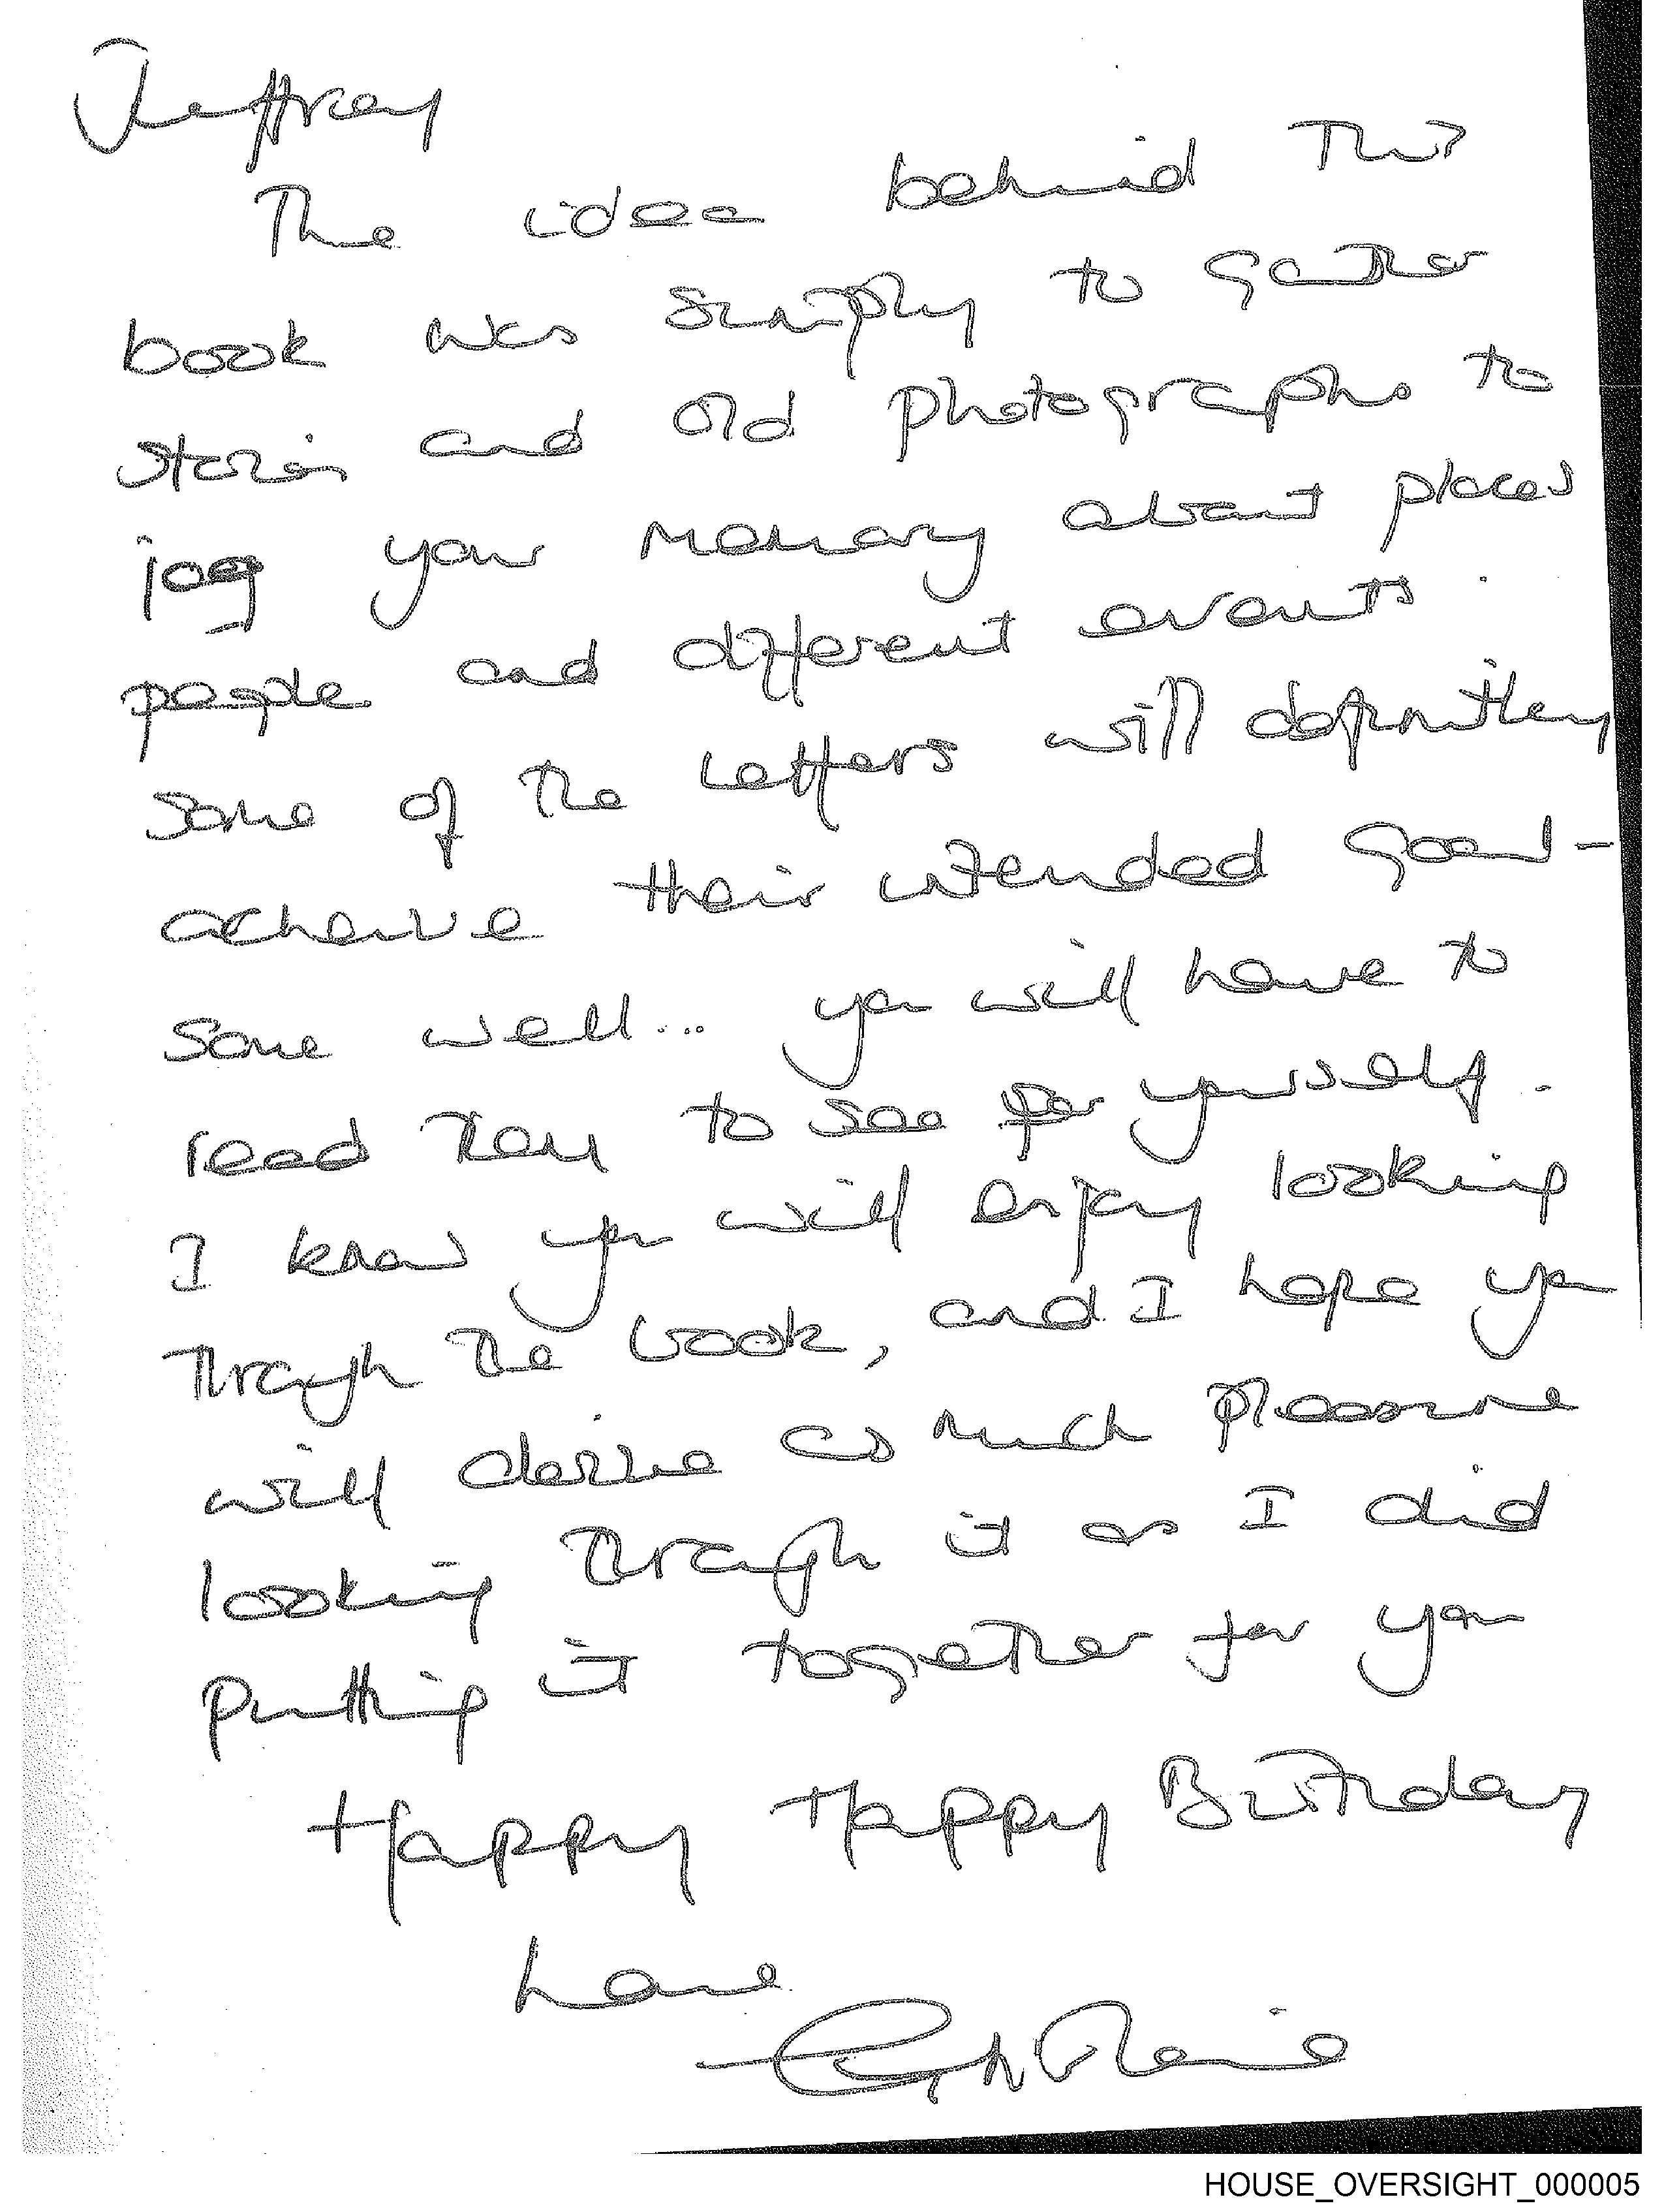 Jeffrey
The idea behind this
book was simply to gather
stories and old photographs to
jog your memory about places
people and different events.
Some of the letters will definitley
acheive their intended goal -
some well... you will have to
read them to see for yourself.
I know you will enjoy looking
through the book, and I hope you
will derive as much pleasure
looking through it as I did
putting it together for you
Happy Happy Birthday
Love
Ghislaine
HOUSE_OVERSIGHT_000005